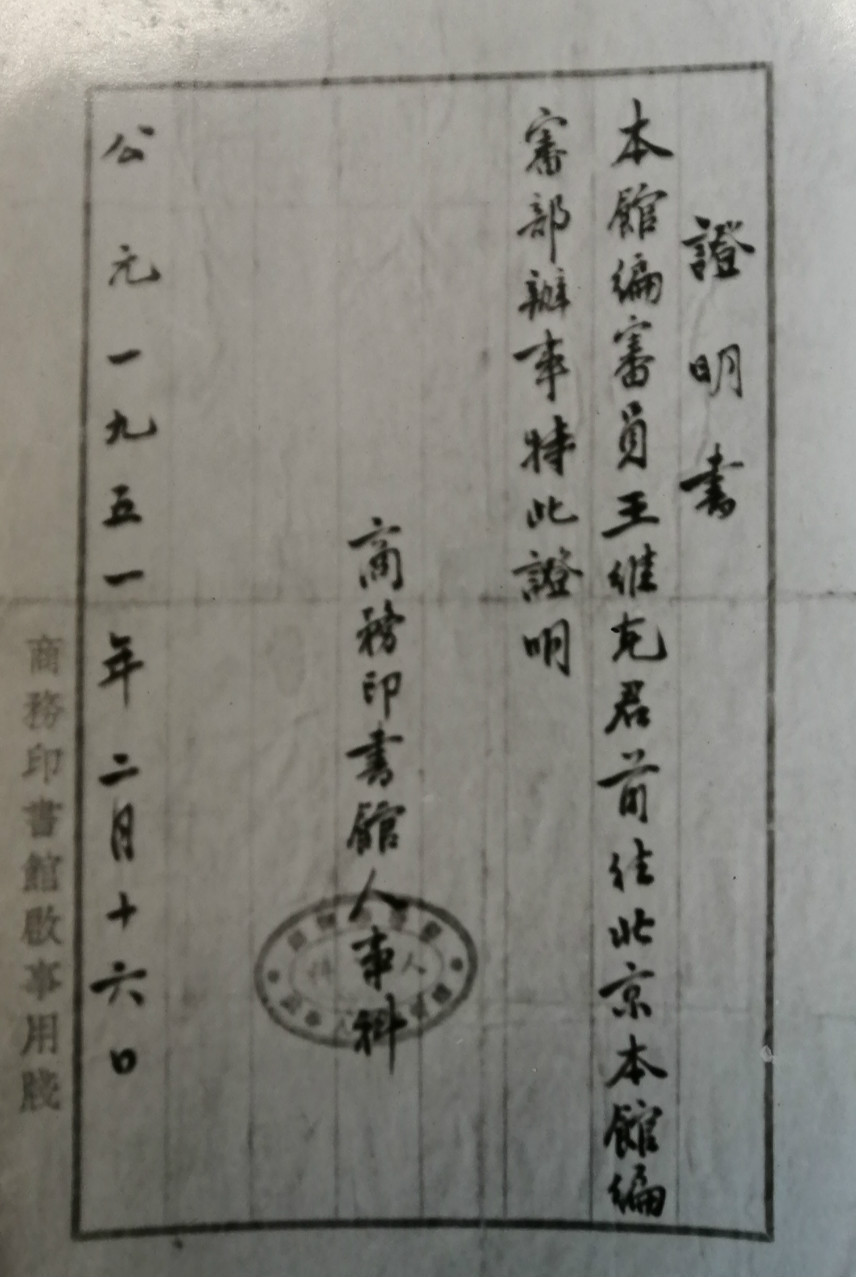 證明書
本館編審員王維克君前往北京本館編
審部辦事特此證明
商務印書館人事科
公元一九五一年二月十六日
商務印書館啟事用牋